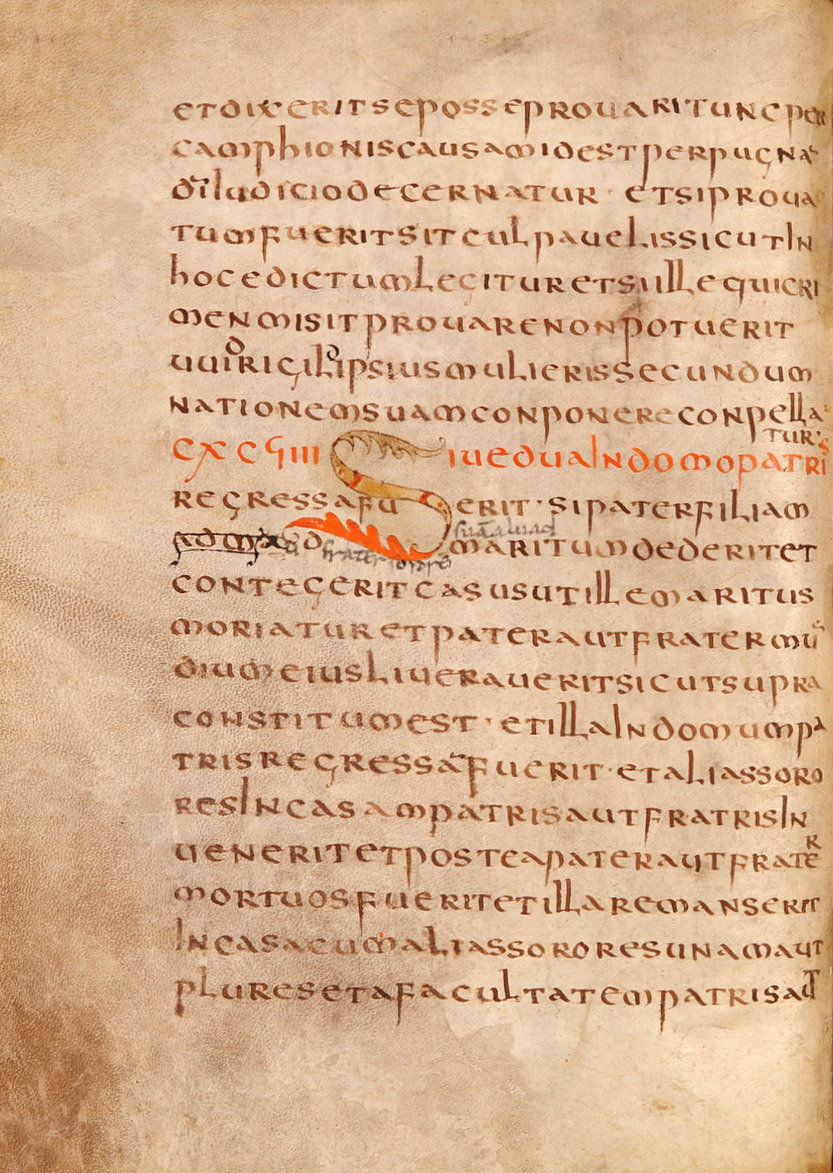 et dixerit se posse prouari tunc per
camphionis causam id est per pugnā
dī iudicio decernatur · et si proua
tum fuerit sit culpauelis sicut in
hoc edictum legitur et si ille qui cri
men misit prouare non potuerit
uuidrigild ipsius mulieris secundum
nationem suam conponere conpella
tur·
CXCVIIII Siue dua in domo patris
regressa fuerit · si pater filiam
suam aliuad
ad maritum dederit et
aut frater
contegerit casus ut ille maritus
moriatur et pater aut frater mū
dium eius liueraueritsicut supra
constitutum est · et illa in domum pa
tris regressa fuerit · et alias soro
res in casam patris aut fratris in
uenerit et postea pater aut frater
mortuos fuerit et illa remanserit
in casa cum alias sorores una maut
plures et a facultatem patris aut